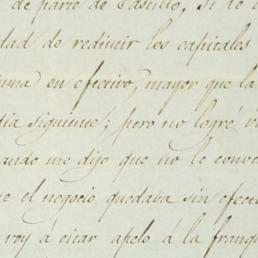 de parte de Castillo, Si te
dad de redimir los capitales
suma en efectivo, mayor que la
dia siguiente; pero no logré
ando me dijo que no le conve
ue el negocio quedaba sin efect
voy á citar apelo á la franq